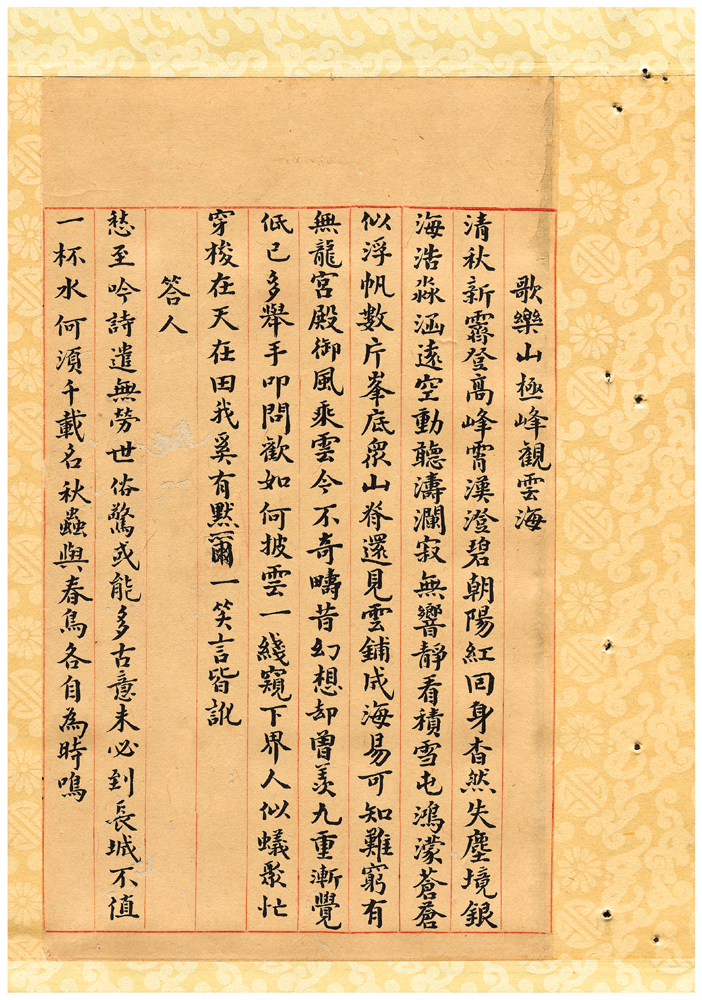 歌樂山極峰觀雲海
清秋新霽登高峰霄漢澄碧朝陽紅回身杳然失塵境銀
海浩淼涵遠空動聽濤瀾寂無響靜看積雪屯鴻濛蒼蒼
似浮帆數片峯底眾山脊還見雲鋪成海易可知難窮有
無龍宮殿御風乘雲今不奇疇昔幻想却曾羨九重漸覺
低已多舉手叩問歡如何披雲一綫窺下界人似蟻聚忙
穿梭在天在田我奚有默爾一笑言皆訛
答人
愁至吟詩遣無勞世俗驚或能多古意未必到長城不值
一杯水何須千載名秋蟲與春鳥各自為時鳴